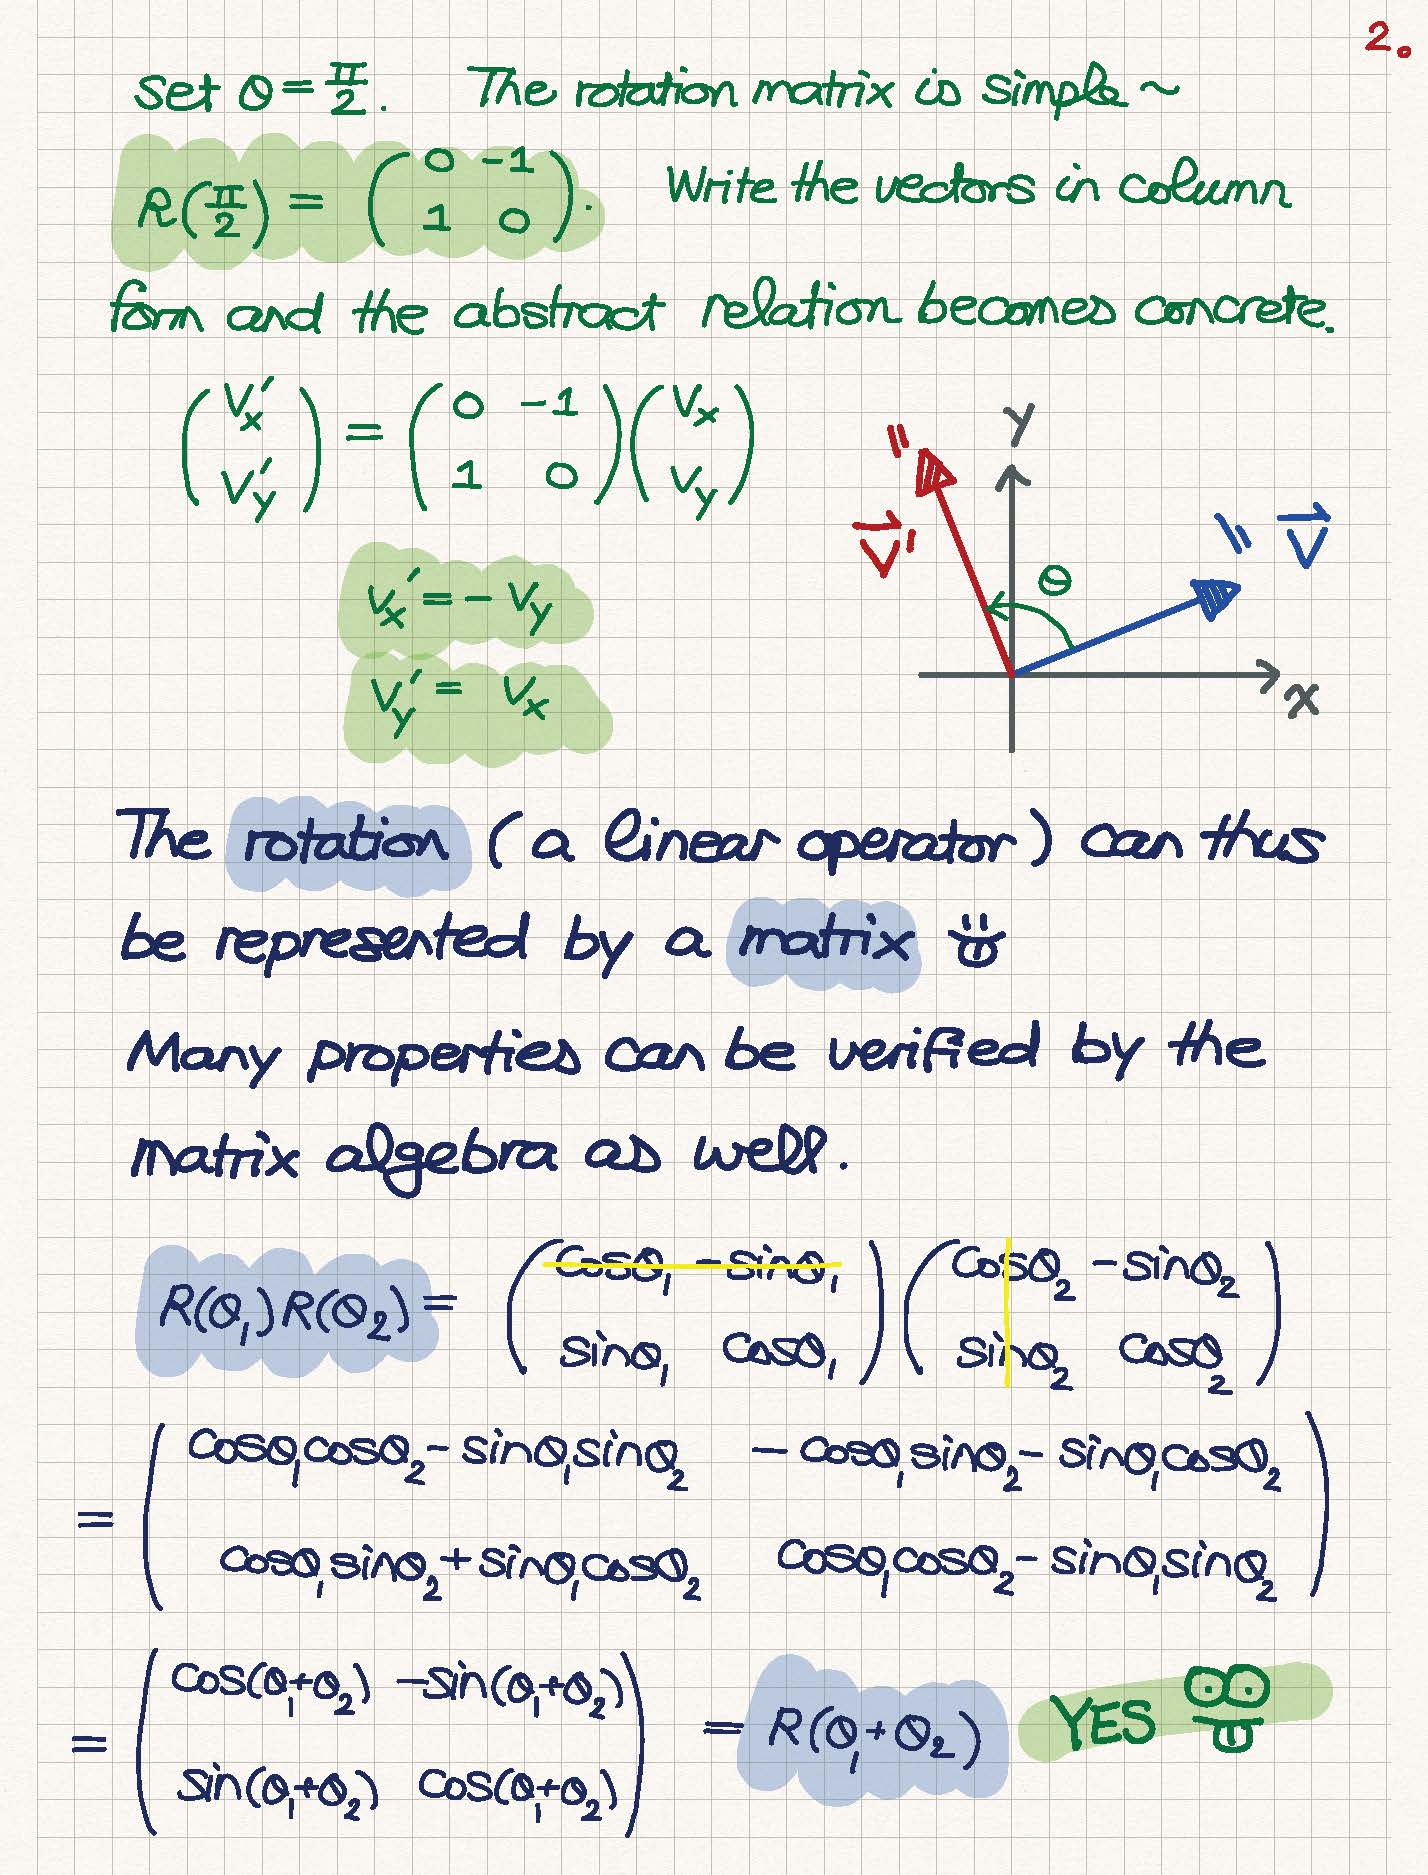 2.
Set θ = π/2. The rotation matrix is simple ~
R(π/2) = ( 0 -1 ; 1 0 ). Write the vectors in column
form and the abstract relation becomes concrete.
( Vx' ; Vy' ) = ( 0 -1 ; 1 0 ) ( Vx ; Vy )
y
V⃗'
V⃗
θ
x
Vx' = - Vy
Vy' = Vx
The rotation (a linear operator) can thus
be represented by a matrix
Many properties can be verified by the
matrix algebra as well.
R(θ₁)R(θ₂) = ( cosθ₁ -sinθ₁ ; sinθ₁ cosθ₁ ) ( cosθ₂ -sinθ₂ ; sinθ₂ cosθ₂ )
= ( cosθ₁cosθ₂ - sinθ₁sinθ₂ -cosθ₁sinθ₂ - sinθ₁cosθ₂ ; cosθ₁sinθ₂ + sinθ₁cosθ₂ cosθ₁cosθ₂ - sinθ₁sinθ₂ )
= ( cos(θ₁+θ₂) -sin(θ₁+θ₂) ; sin(θ₁+θ₂) cos(θ₁+θ₂) ) = R(θ₁+θ₂) YES